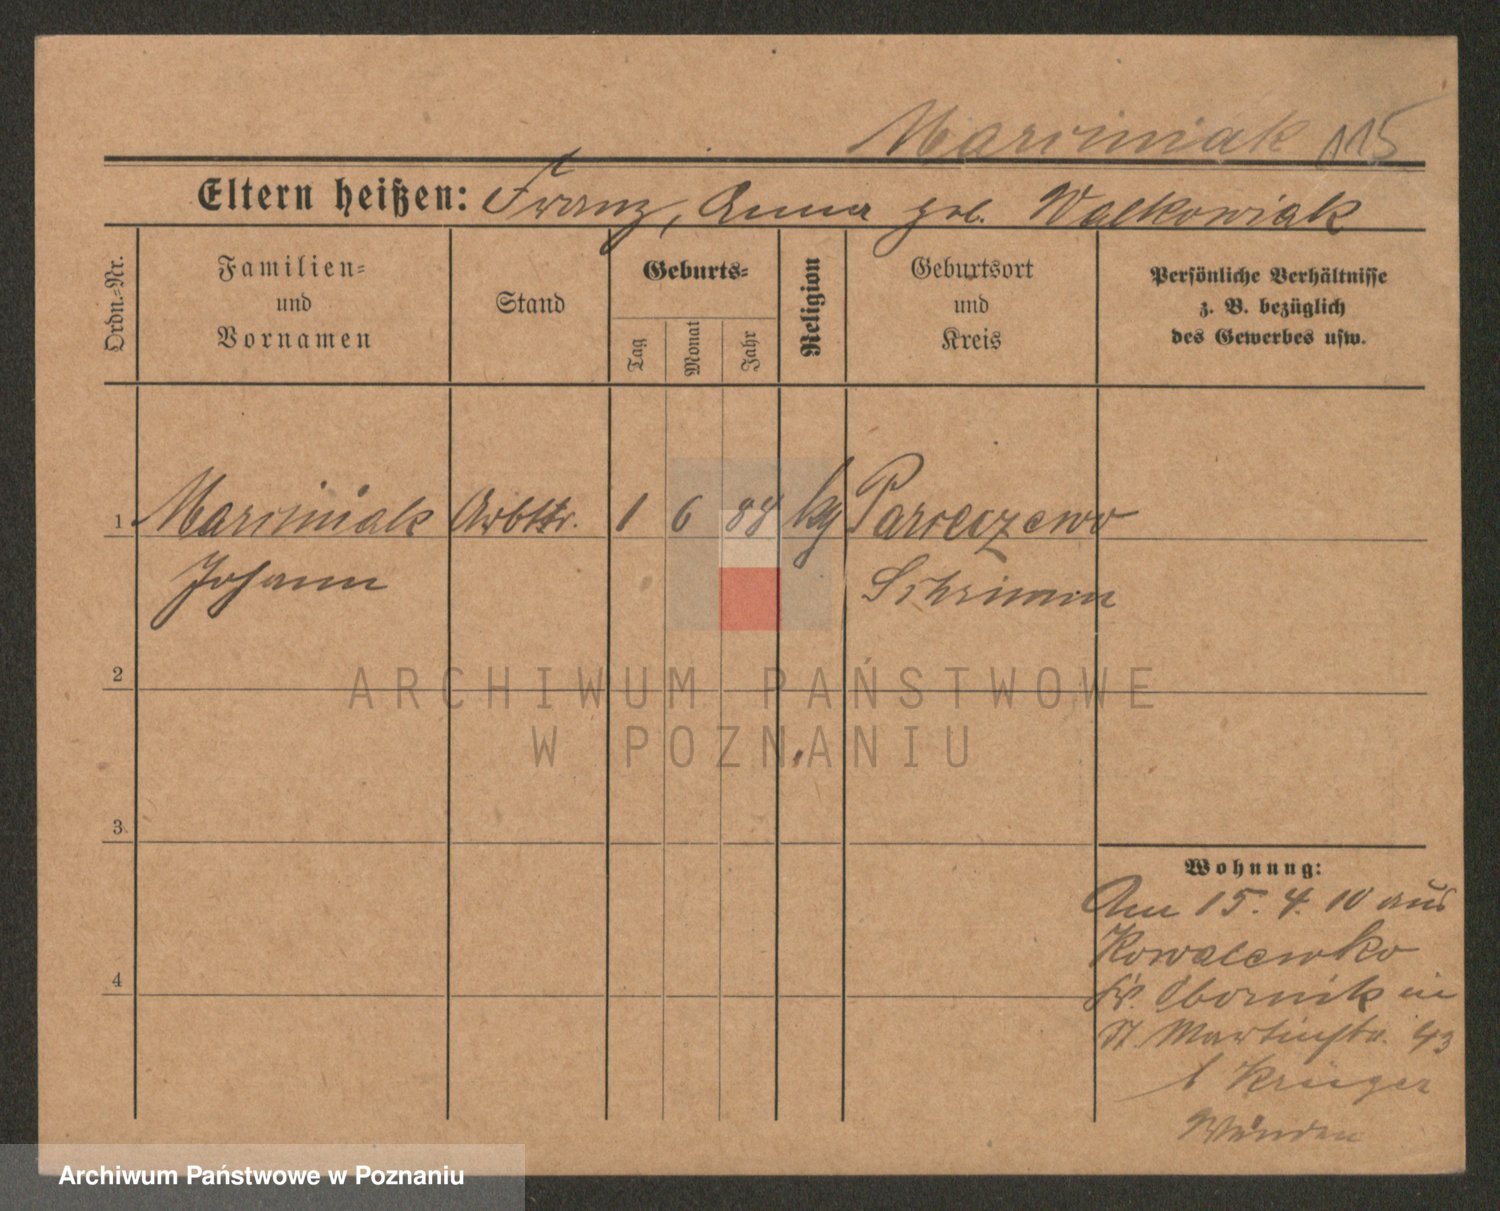 Marciniak 115
Eltern heißen: Franz, Anna geb. Walkowiak
Ordn.-Nr.
Familien- und Vornamen
Stand
Geburts-
Tag
Monat
Jahr
Religion
Geburtsort und Kreis
Persönliche Verhältnisse
z. B. bezüglich
des Gewerbes usw.
1 Marciniak Arbtr. 1 6 88 kg Parzenczewo
Johann Schrimm
2
ARCHIWUM PAŃSTWOWE
W POZNANIU
3
Wohnung:
Am 15. 4. 10 aus
Kowalewko
4
Kr. Obornik in
St. Martinstr. 43
b Krüger
Archiwum Państwowe w Poznaniu